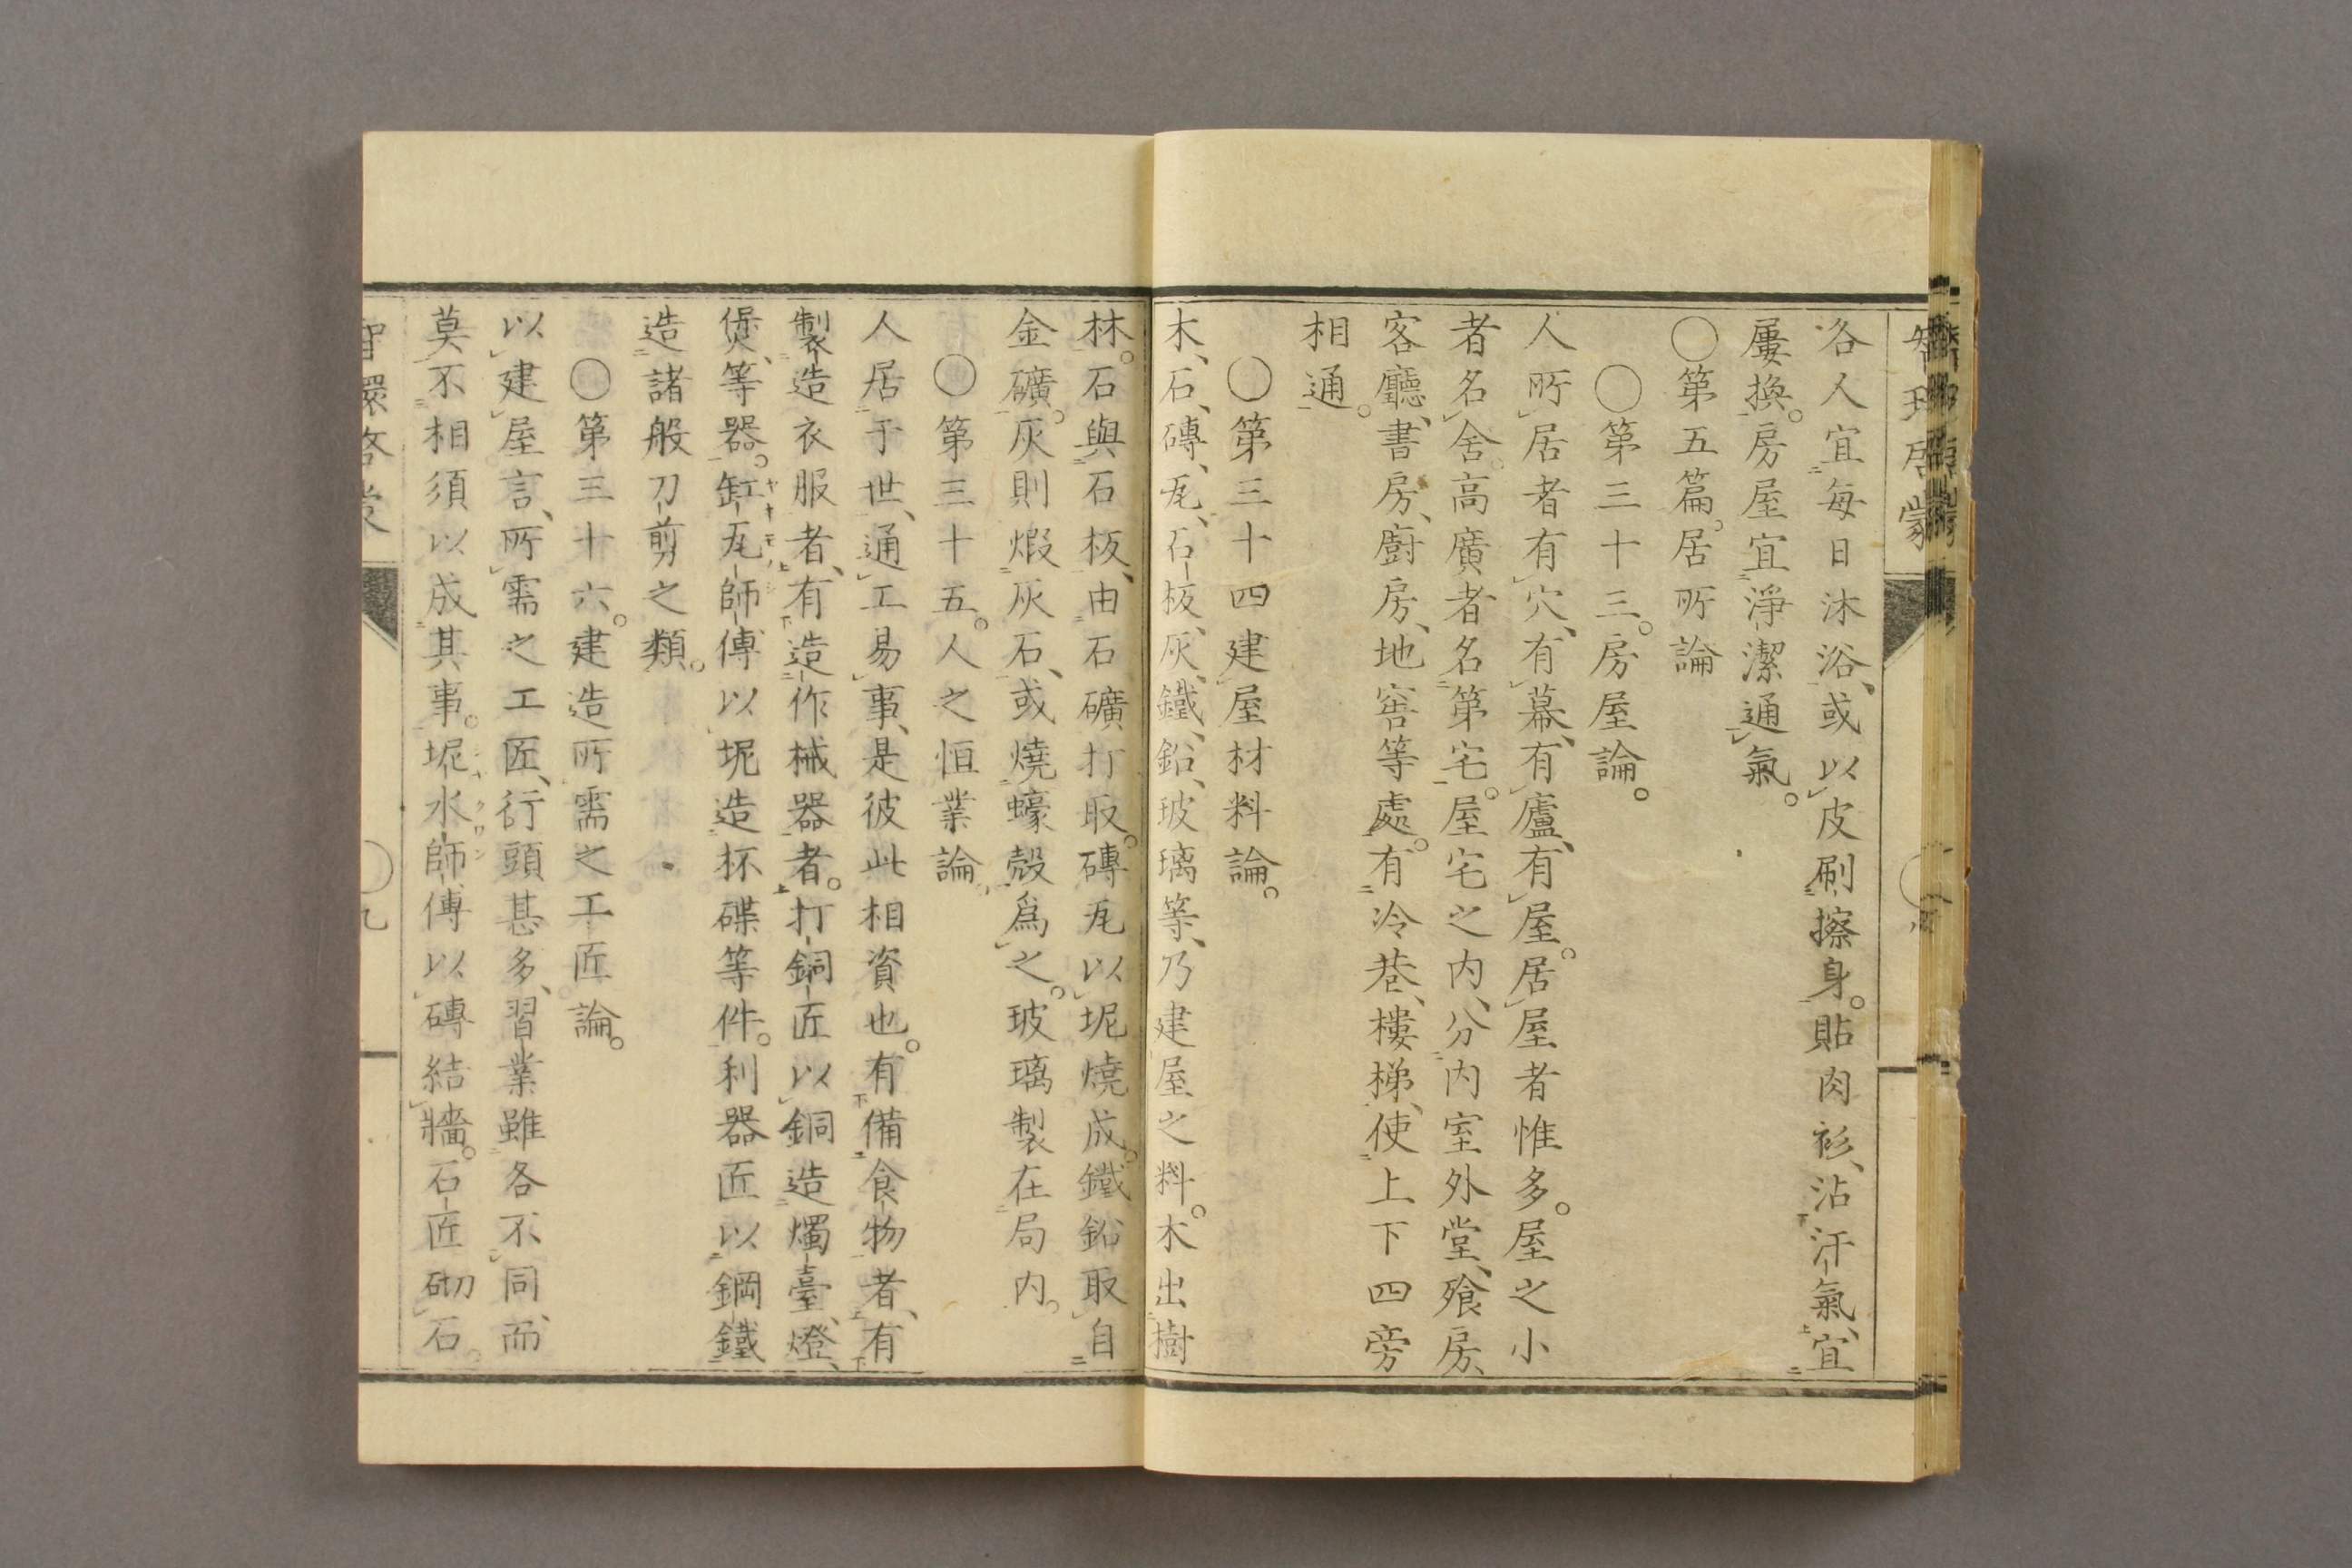 各人宜每日沐浴、或以皮刷擦身。貼肉衫、沾汗氣、宜
屢換。房屋宜淨潔通氣。
〇第五篇。居所論
〇第三十三。房屋論。
人所居者有穴、有幕、有廬、有屋。居屋者惟多。屋之小
者名舍。高廣者名第宅。屋宅之内、分内室外堂、飧房、
客廳、書房、廚房、地窖等處。有冷巷、樓梯、使上下四旁
相通。
〇第三十四建屋材料論。
木、石、磚、瓦、石板、灰、鐵、鉛、玻璃等、乃建屋之料。木出樹
林。石與石板、由石礦打取。磚瓦以坭燒成。鐵鉛取自
金礦。灰則煆灰石、或燒蠔殼爲之。玻璃製在局内。
〇第三十五。人之恒業論
人居于世、通工易事、是彼此相資也。有備食物者、有
製造衣服者、有造作械器者。打銅匠以銅造燭臺、燈、
煲、等器。缸瓦師傅以坭造杯碟等件。利器匠以鋼鐵
造諸般刀剪之類。
〇第三十六。建造所需之工匠論。
以建屋言、所需之工匠、行頭甚多、習業雖各不同、而
莫不相須以成其事。坭水師傅以磚結牆。石匠砌石。
九